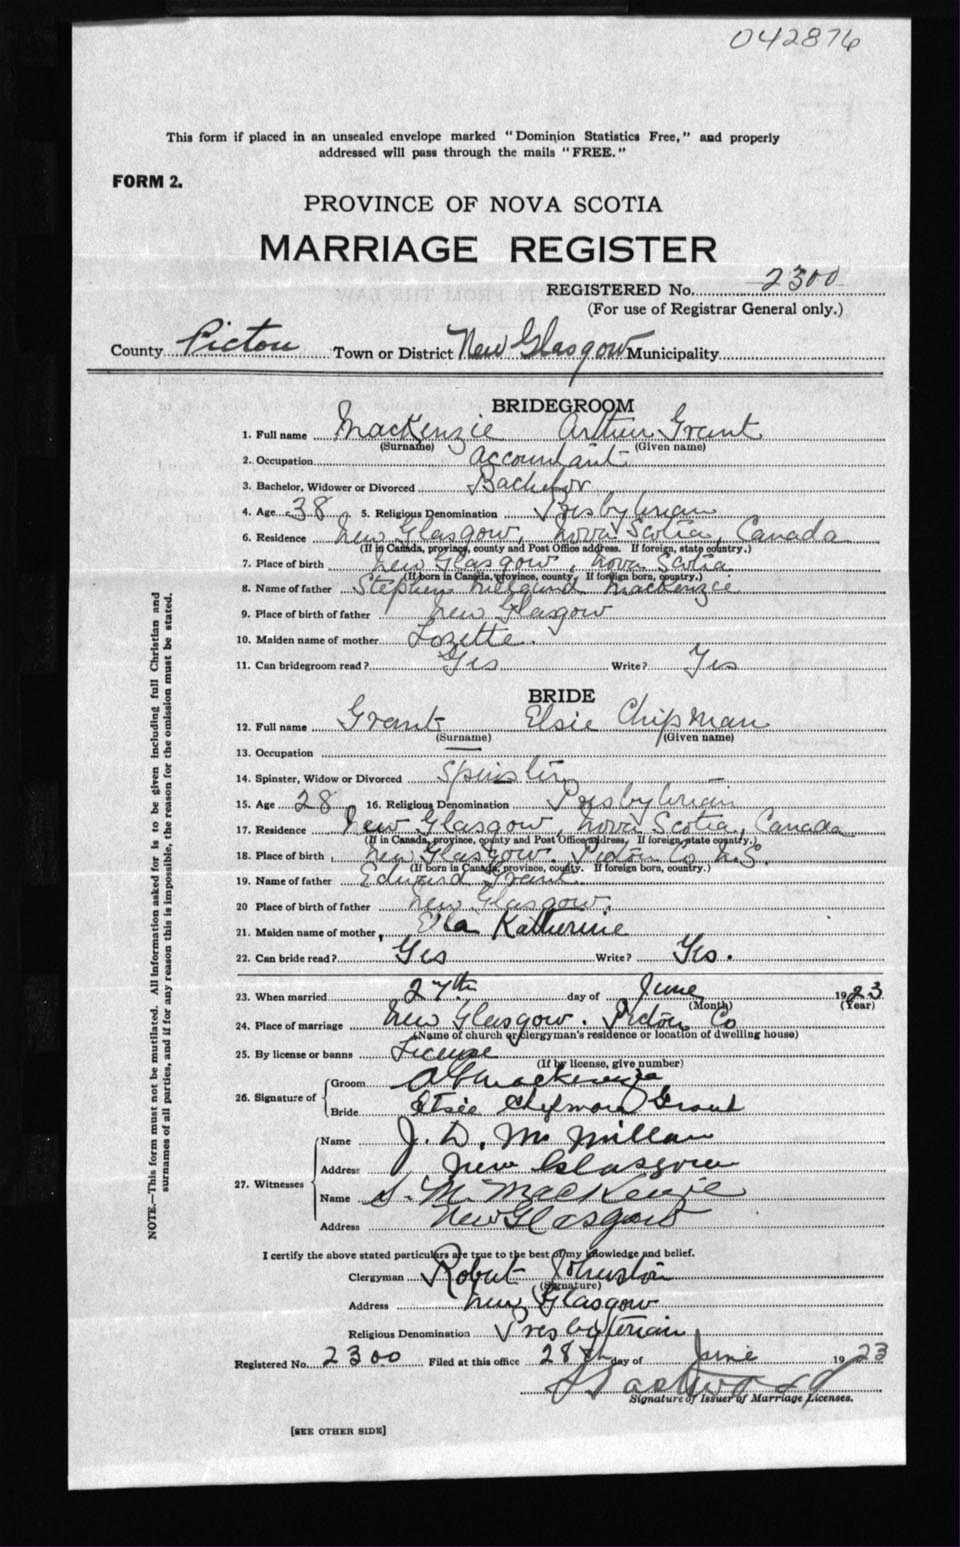 042876
This form if placed in an unsealed envelope marked "Dominion Statistics Free," and properly
addressed will pass through the mails "FREE."
FORM 2.
PROVINCE OF NOVA SCOTIA
MARRIAGE REGISTER
REGISTERED No. 2300
(For use of Registrar General only.)
County Pictou Town or District New Glasgow Municipality
BRIDEGROOM
1. Full name MacKenzie Arthur Grant
(Surname) (Given name)
2. Occupation accountant
3. Bachelor, Widower or Divorced Bachelor
4. Age 38 5. Religious Denomination Presbyterian
6. Residence New Glasgow, Nova Scotia, Canada
(If in Canada, province, county and Post Office address. If foreign, state country.)
7. Place of birth New Glasgow, Nova Scotia
(If born in Canada, province, county. If foreign born, country.)
8. Name of father Stephen MacKenzie
9. Place of birth of father New Glasgow
10. Maiden name of mother Lozette.
11. Can bridegroom read? Yes Write? Yes
BRIDE
12. Full name Grant Elsie Chipman
(Surname) (Given name)
13. Occupation —
14. Spinster, Widow or Divorced Spinster
15. Age 28 16. Religious Denomination Presbyterian
17. Residence New Glasgow, Nova Scotia, Canada
(If in Canada, province, county and Post Office address. If foreign, state country.)
18. Place of birth New Glasgow. Pictou Co N.S.
(If born in Canada, province, county. If foreign born, country.)
19. Name of father Edward Grant
20 Place of birth of father New Glasgow.
21. Maiden name of mother, Ella Katherine
22. Can bride read? Yes Write? Yes.
23. When married 27th day of June 1923
(Month) (Year)
24. Place of marriage New Glasgow. Pictou Co
(Name of church or clergyman's residence or location of dwelling house)
25. By license or banns License
(If by license, give number)
26. Signature of Groom A G Mackenzie
Bride Elsie Chipman Grant
27. Witnesses Name J. D. McMillan
Address New Glasgow
Name S. M. MacKenzie
Address New Glasgow
I certify the above stated particulars are true to the best of my knowledge and belief.
Clergyman Robert Johnston
(Signature)
Address New Glasgow
Religious Denomination Presbyterian
Registered No. 2300 Filed at this office 28th day of June 1923
Signature of Issuer of Marriage Licenses.
[SEE OTHER SIDE]
NOTE.—This form must not be mutilated. All information asked for is to be given including full Christian and
surnames of all parties, and if for any reason this is impossible, the reason for the omission must be stated.